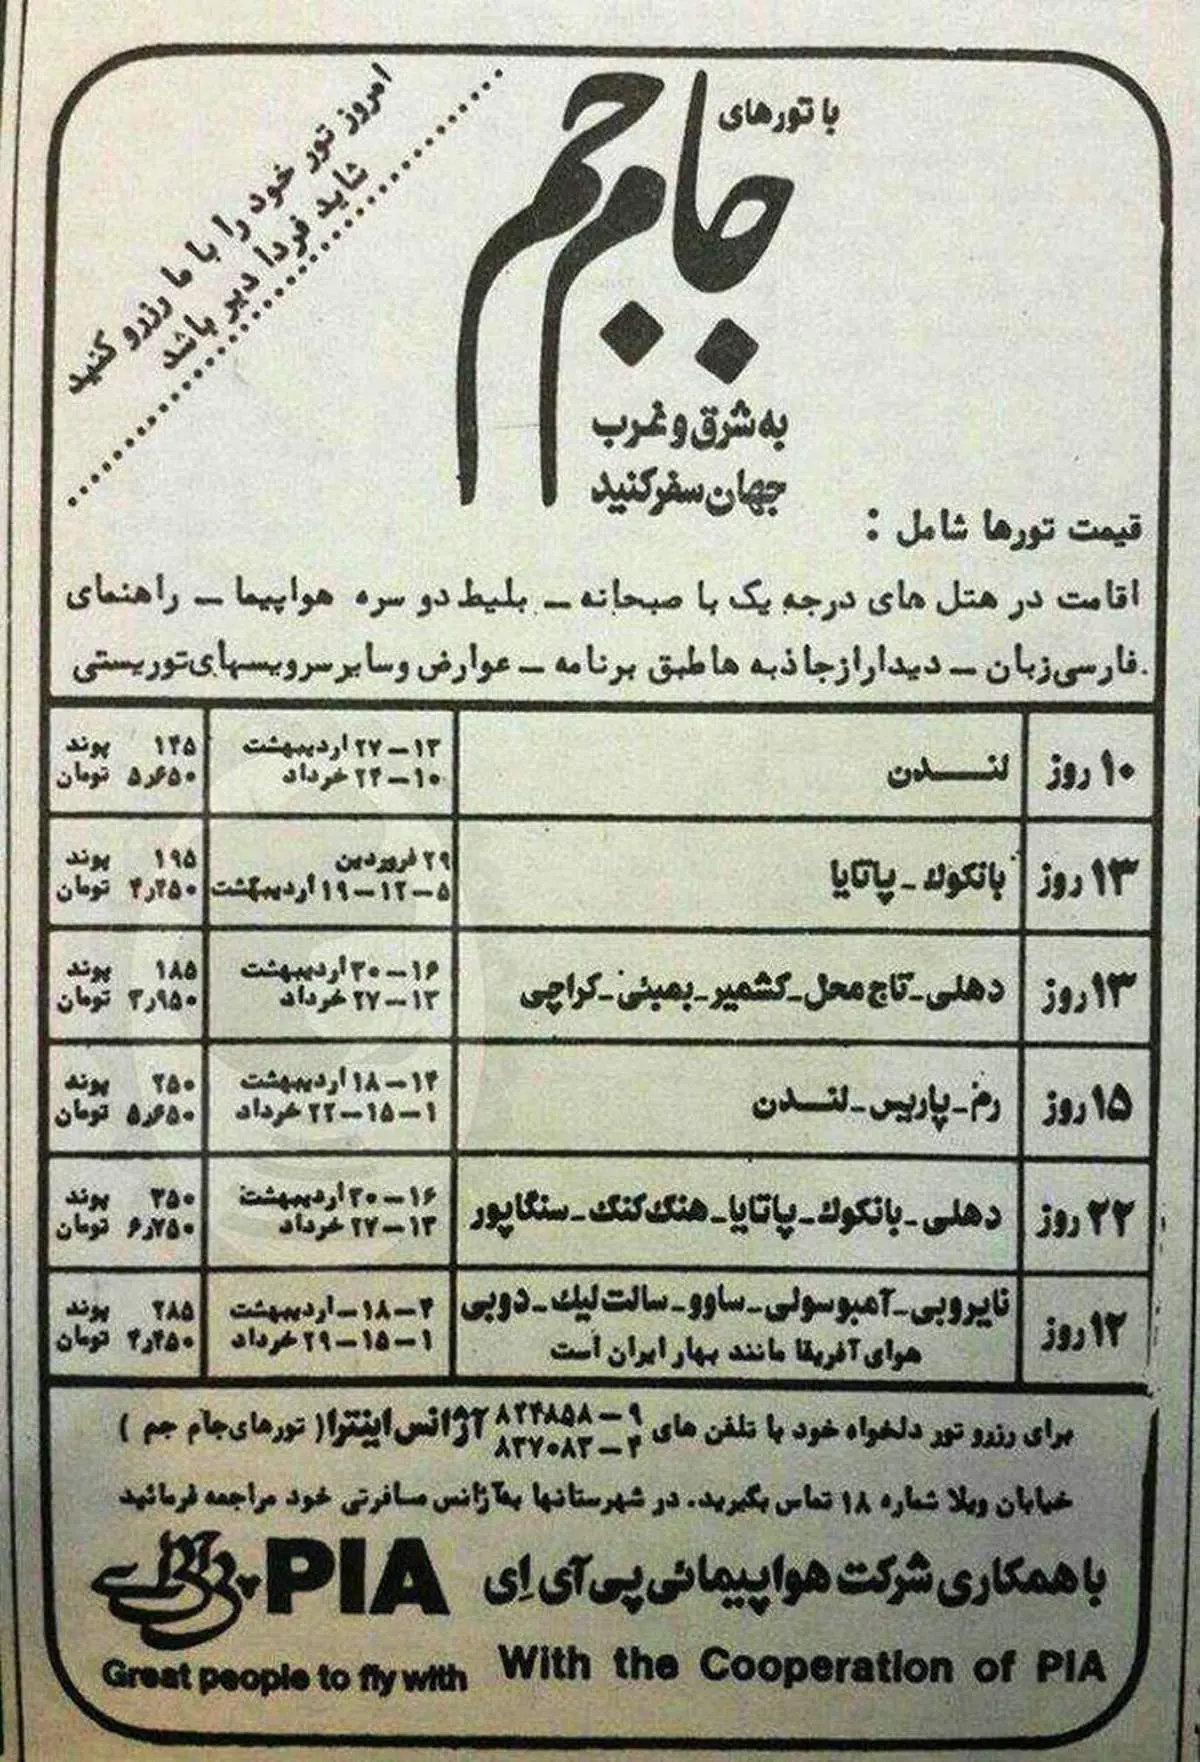 امروز تور خود را با ما رزرو کنید
شاید فردا دیر باشد
با تورهای
جام جم
به شرق و غرب
جهان سفر کنید
قیمت تورها شامل :
اقامت در هتل های درجه یک با صبحانه ــ بلیط دو سره هواپیما ــ راهنمای
فارسی زبان ــ دیدار از جاذبه ها طبق برنامه ــ عوارض و سایر سرویسهای توریستی
۱۰ روز
لنـــدن
۱۳ــ۲۷ اردیبهشت
۱۰ــ۲۴ خرداد
۱۴۵ پوند
۵٫۶۵۰ تومان
۱۳ روز
بانکوک ـ پاتایا
۲۹ فروردین
۵ــ۱۲ــ۱۹ اردیبهشت
۱۹۵ پوند
۴٫۲۵۰ تومان
۱۳ روز
دهلی ـ تاج محل ـ کشمیر ـ بمبئی ـ کراچی
۱۶ــ۳۰ اردیبهشت
۱۳ــ۲۷ خرداد
۱۸۵ پوند
۳٫۹۵۰ تومان
۱۵ روز
رم ـ پاریس ـ لنـــدن
۱۴ــ۱۸ اردیبهشت
۱ــ۱۵ــ۲۲ خرداد
۲۵۰ پوند
۵٫۶۵۰ تومان
۲۲ روز
دهلی ـ بانکوک ـ پاتایا ـ هنگ کنگ ـ سنگاپور
۱۶ــ۳۰ اردیبهشت
۱۳ــ۲۷ خرداد
۳۵۰ پوند
۶٫۷۵۰ تومان
۱۲ روز
نایروبی ـ آمبوسولی ـ ساوو ـ سالت لیک ـ دوبی
هوای آفریقا مانند بهار ایران است
۴ــ۱۸ــ اردیبهشت
۱ــ۱۵ــ۲۹ خرداد
۲۸۵ پوند
۴٫۴۵۰ تومان
برای رزرو تور دلخواه خود با تلفن های ۹ــ۸۲۴۸۵۸ ۴ــ۸۳۷۰۸۳ آژانس اینترا ( تورهای جام جم )
خیابان ویلا شماره ۱۸ تماس بگیرید. در شهرستانها به آژانس مسافرتی خود مراجعه فرمائید
با همکاری شرکت هواپیمائی پی آی ای
PIA
پی آئی اے
With the Cooperation of PIA
Great people to fly with